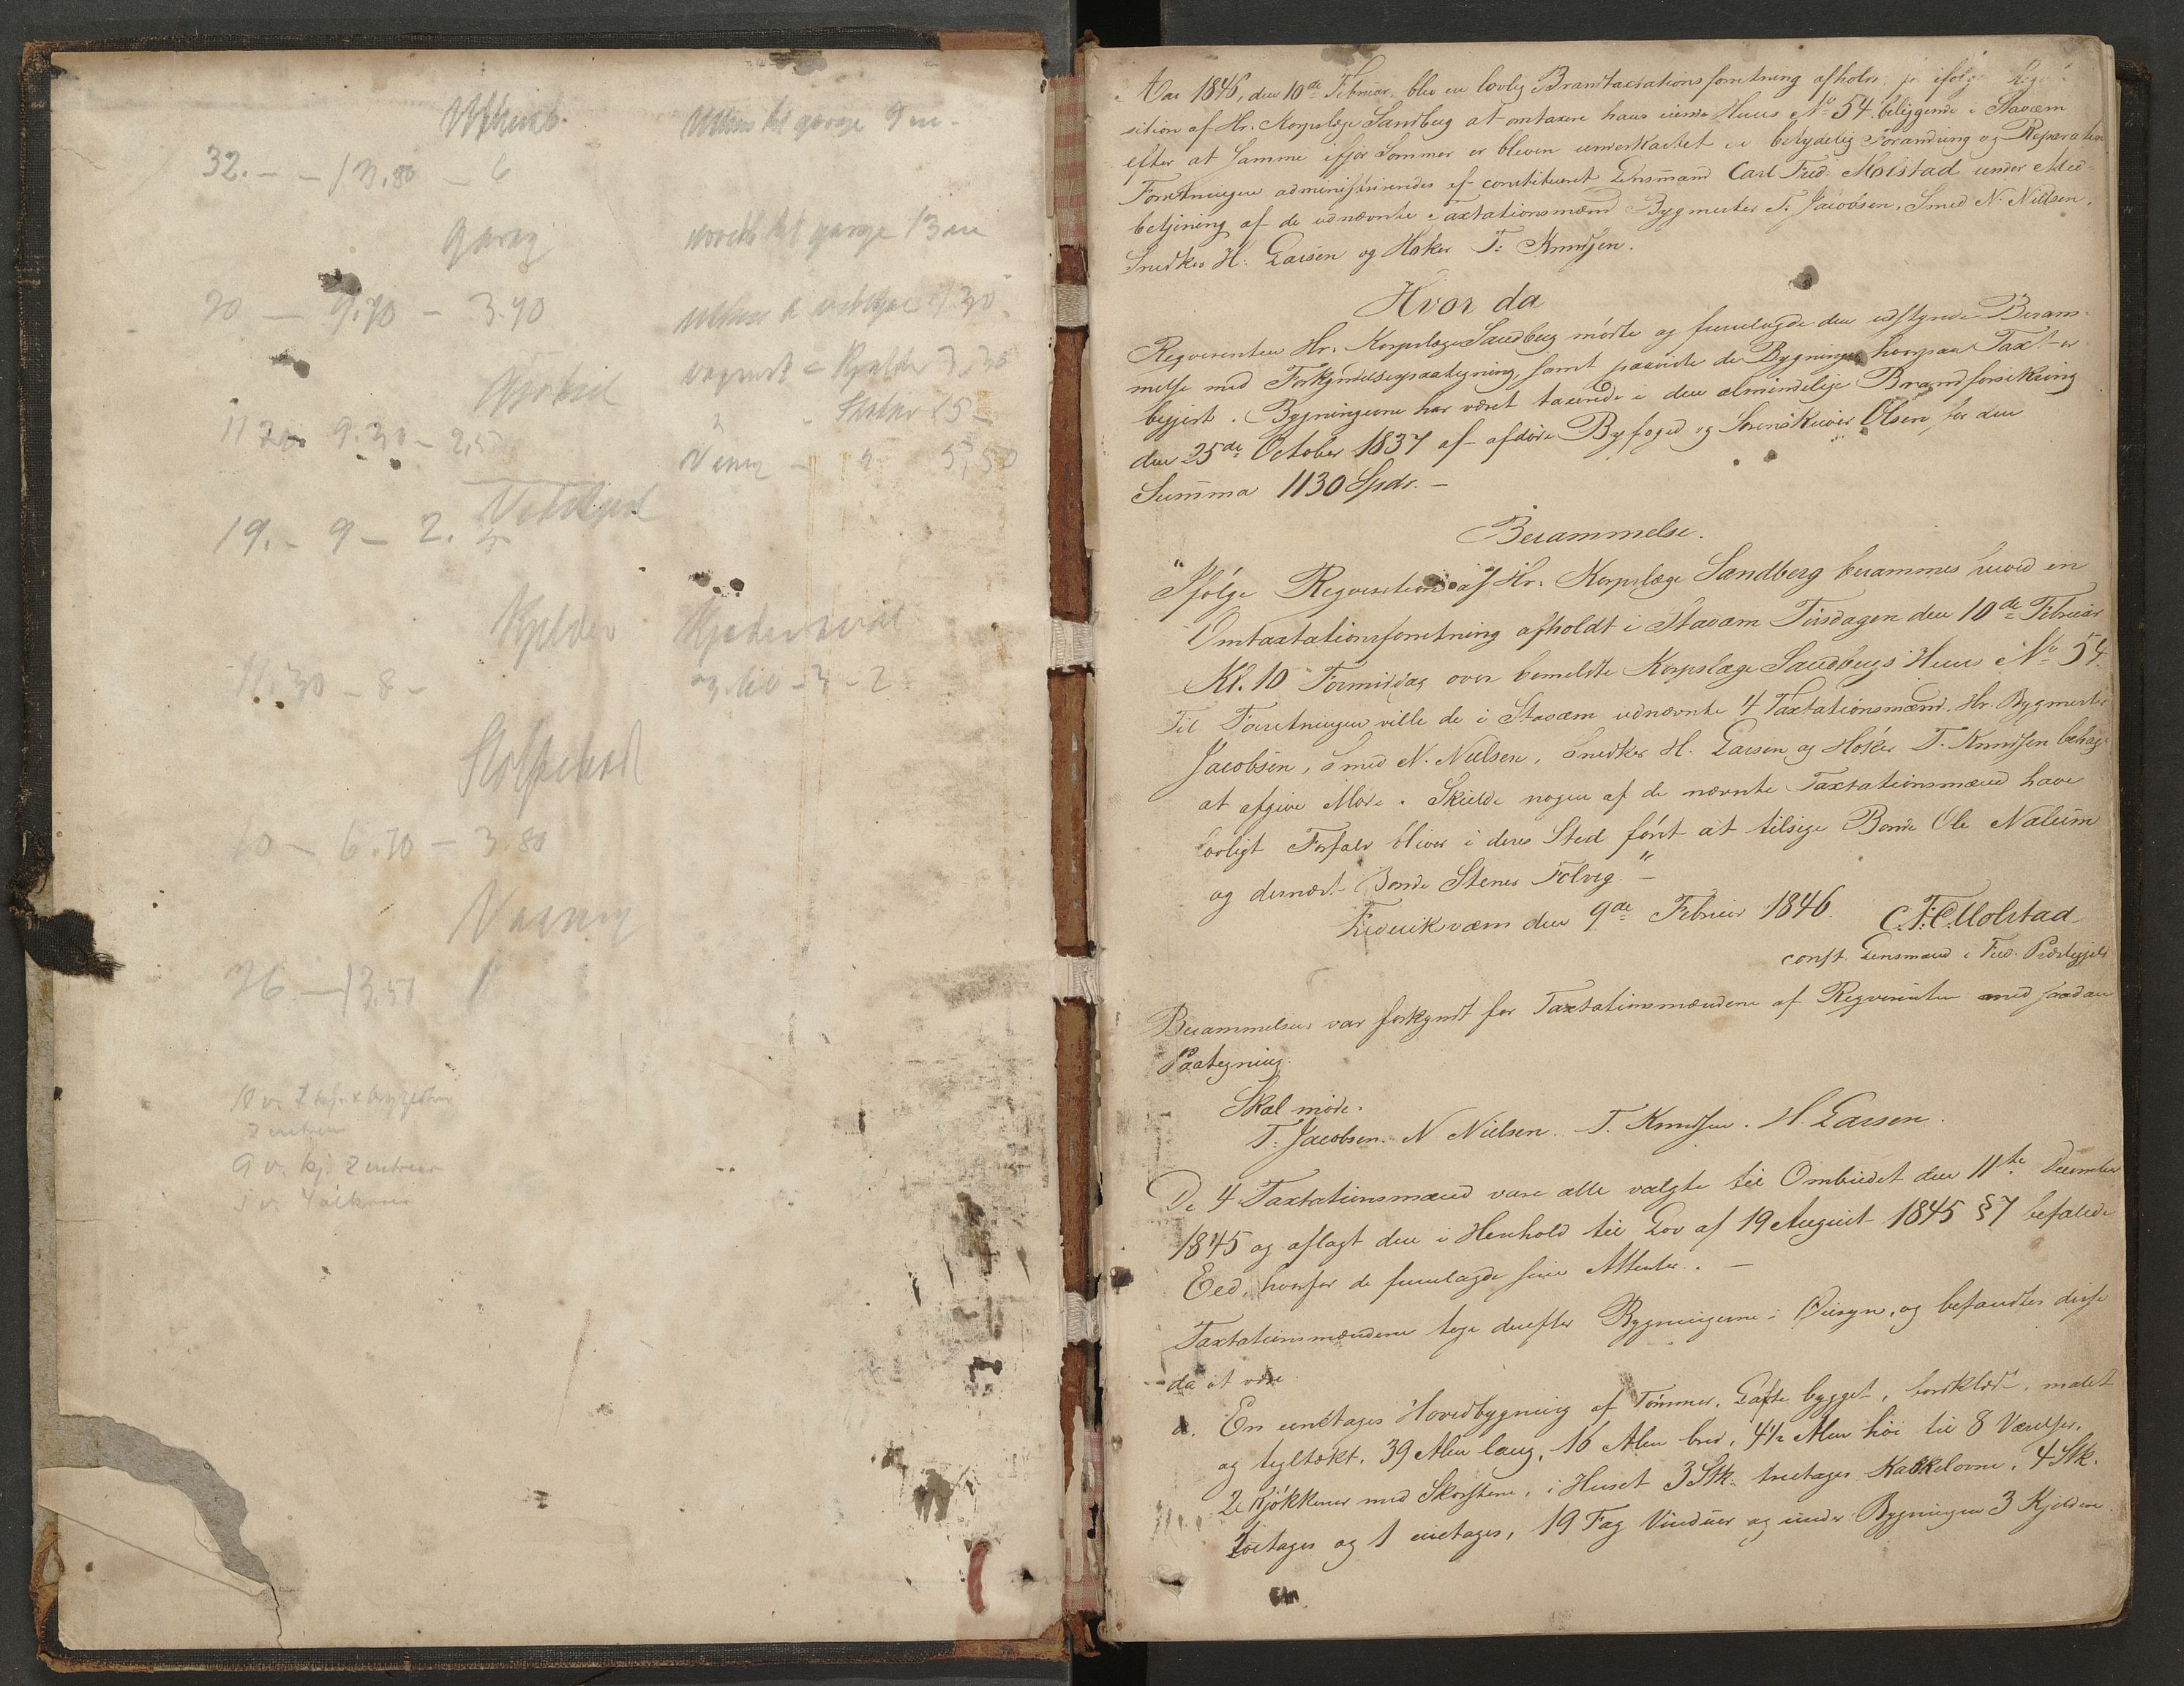 32. - - 13.80 - 6
garag
garage 9 m -
garage 13 m
20 - 9.70 - 3.40
9.30 - 2,5
5,50
19. - 9 - 2.
Kjelder
11.30 - 8 -
10 - 6.70 - 3.80
36 - 13,50
Aar 1846, den 10de Februar, blev en lovlig Brandtaxtationsforretning afholdt ifølge
sition af Hr. Korpslæge Sandberg at omtaxere hans eiende Huus No 54 beliggende i Staværn
efter at Samme ifjor Sommer er bleven underkastet en betydelig Forandring og Reparation
Forretningen administreredes af constitueret Lensmand Carl Fred: Molstad under Med-
betjening af de udnævnte Taxtationsmænd Bygmester T. Jacobsen, Smed N. Nielsen,
Snedker H. Larsen og Høker T: Knudsen.
Hvor da
Reqvirenten Hr. Korpslæge Sandberg mødte og fremlagde den udstedte Beram-
melse med Forkyndelsespaategning, samt paaviste de Bygninger hvorpaa Taxt er
begjert. Bygningerne har været taxerede i den almindelige Brandforsikring
den 25de October 1837 af afdøde Byfoged og Sorenskriver Olsen for den
Summa 1130 Spdr. -
Berammelse.
"Ifølge Reqvisition af Hr. Korpslæge Sandberg berammes herved en
Omtaxtationsforretning afholdt i Staværn Tirsdagen den 10de Februar
Kl. 10 Formiddag over bemeldte Korpslæge Sandbergs Huus No 54.
Til Forretningen ville de i Staværn udnævnte 4 Taxtationsmænd, Hr. Bygmester
Jacobsen, Smed N. Nielsen, Snedker H. Larsen og Høker T. Knudsen behage
at afgive Møde. Skulde nogen af de nævnte Taxtationsmænd have
lovligt Forfald bliver i deres Sted først at tilsige Bonde Ole Nalum
og dernæst Bonde Stener Tolvig." -
Frederiksværn den 9de Februar 1846. C.F.C. Molstad
const. Lensmand i Fred. Præstegjeld
Berammelsen var forkyndt for Taxtationsmændene af Reqvirenten med saadan
Paategning:
Skal møde.
T: Jacobsen. N Nielsen. T. Knudsen. H. Larsen.
De 4 Taxtationsmænd vare alle valgte til Ombudet den 11te December
1845 og aflagt den i Henhold til Lov af 19 August 1845 §7 befalede
Eed, hvorfor de fremlagde sine Attester. -
Taxtationsmændene toge derefter Bygningerne i Øiesyn, og befandtes disse
da at være
a. En eenetages Hovedbygning af Tømmer, Lafte bygget, bordklædt, malet
og tegltækt, 39 Alen lang, 16 Alen bred, 4½ Alen høi til 8 Værelser,
2 Kjøkkener med Skorstene, i Huset 3 Stk. treetages Kakkelovne, 4 Stk.
toetages og 1 eenetages, 19 Fag Vinduer og under Bygningen 3 Kjeldere.